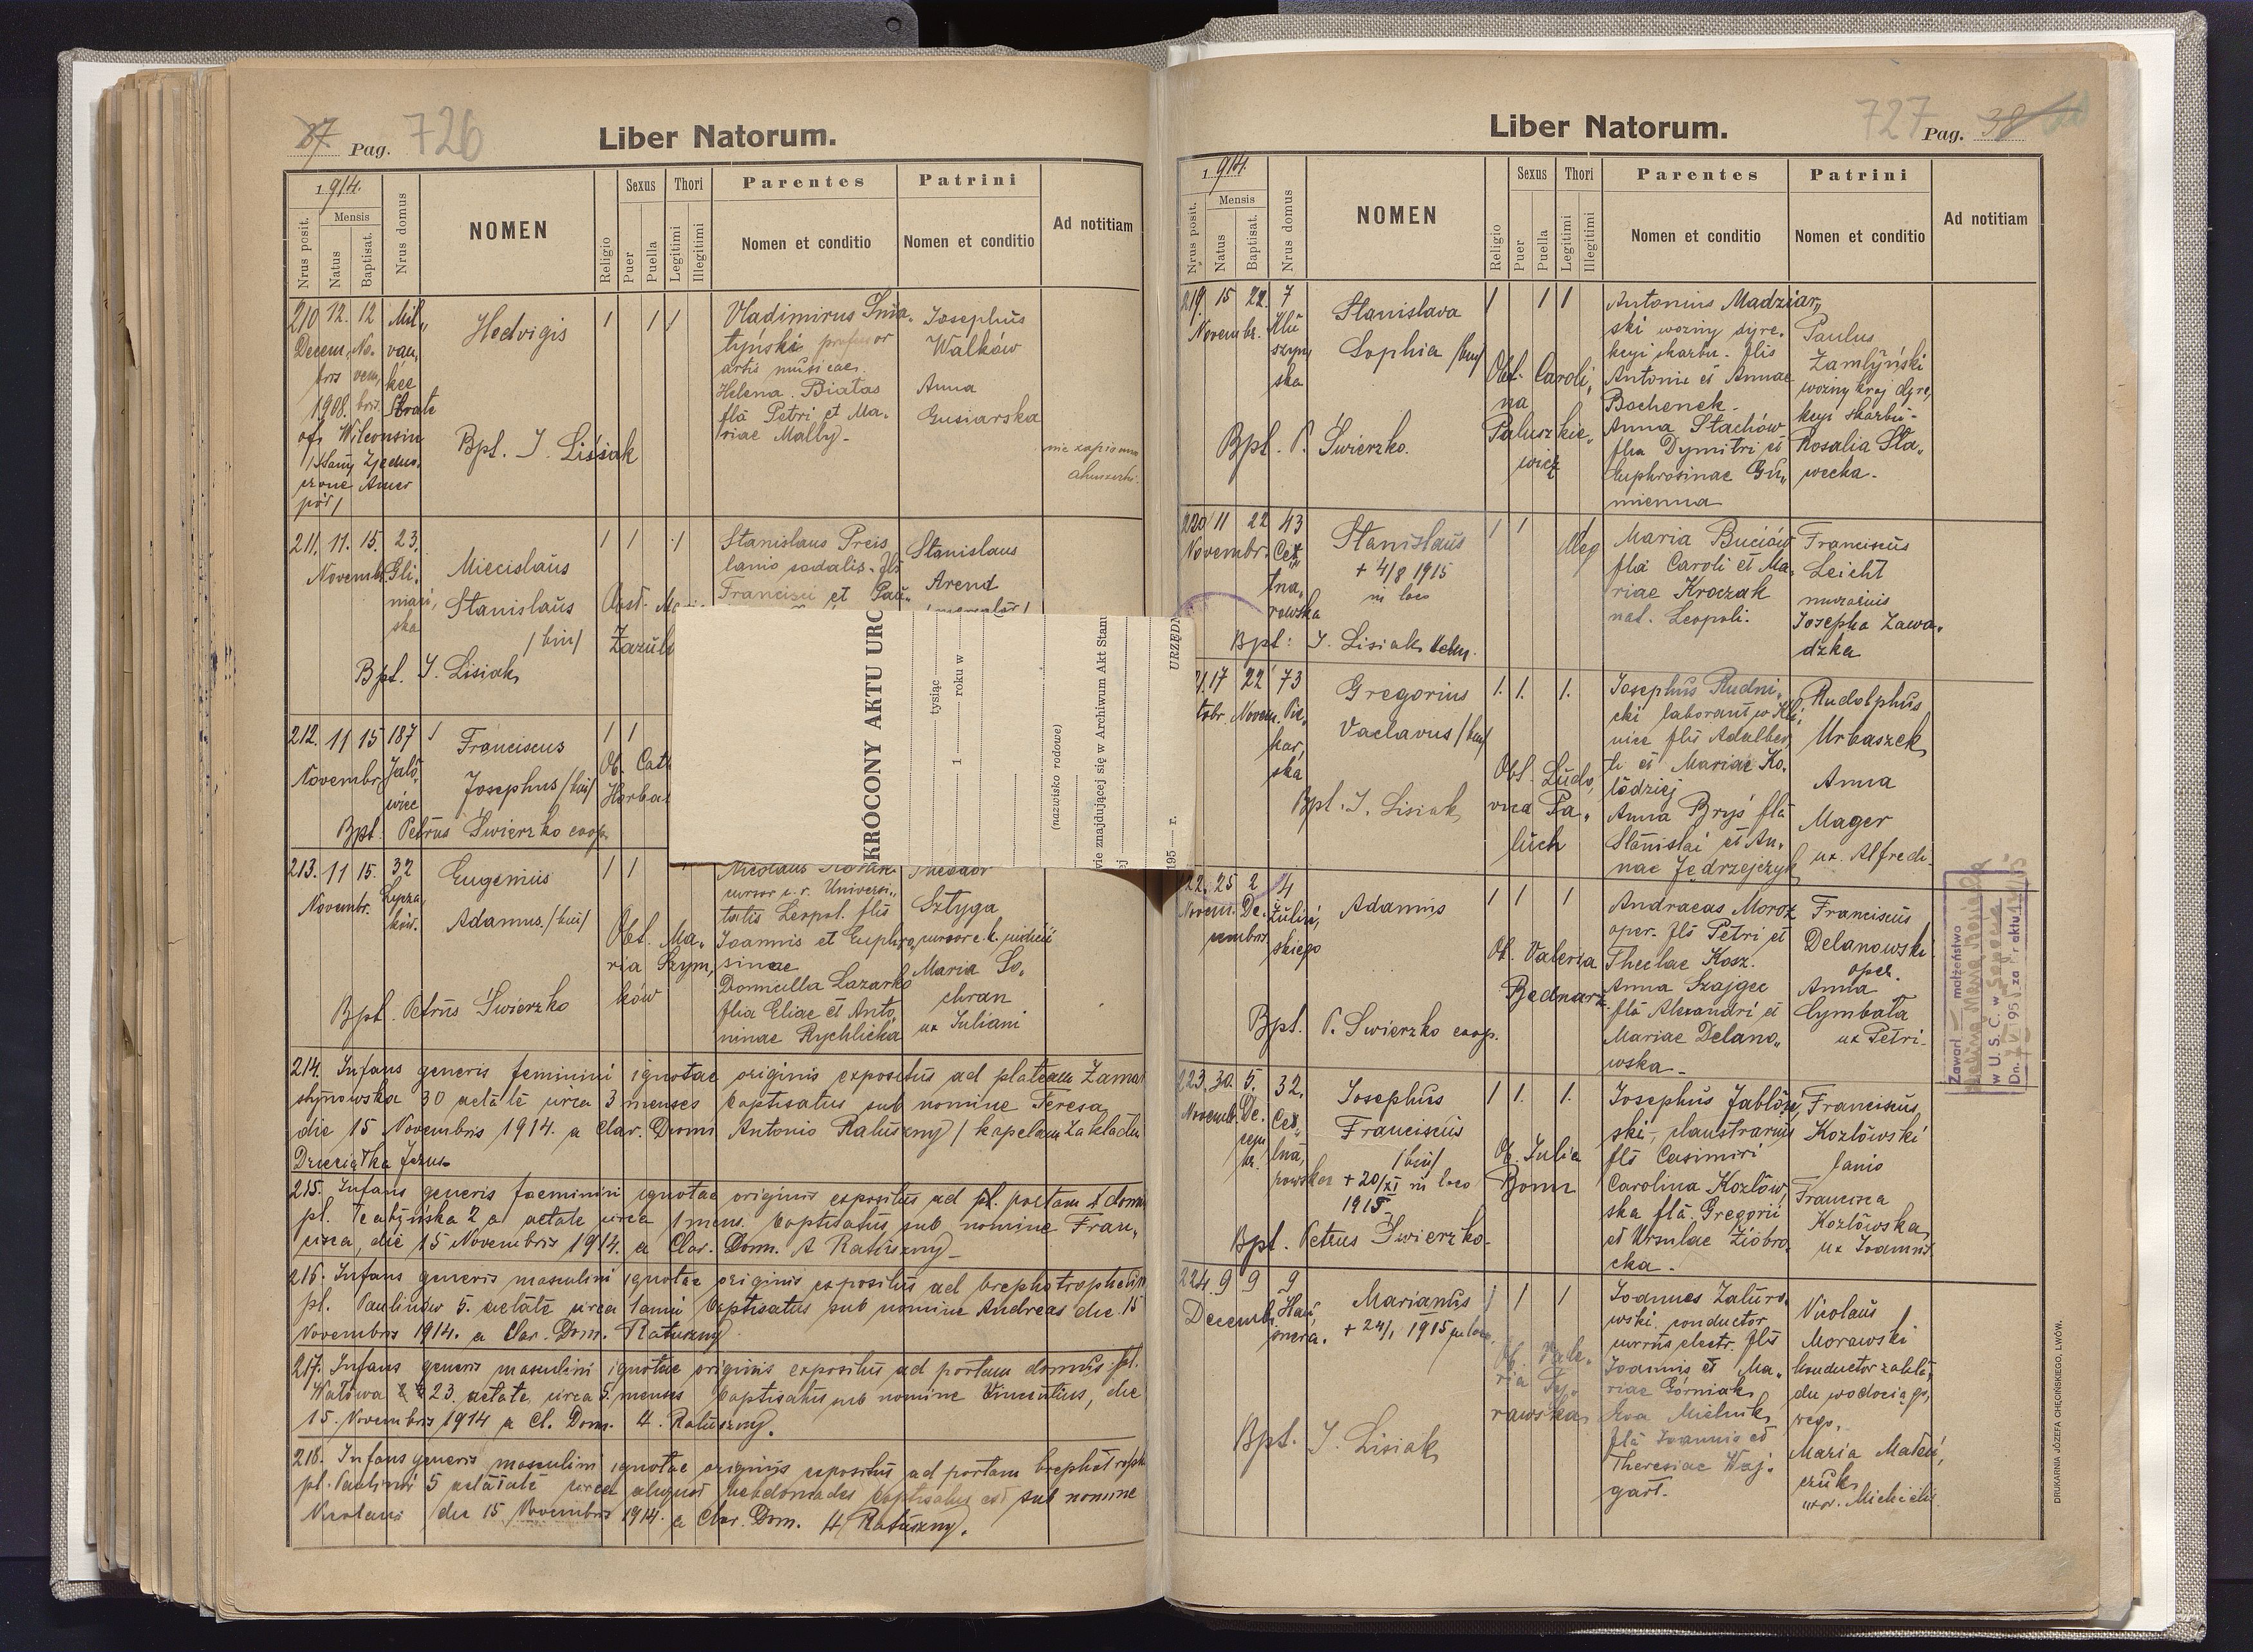 37 Pag. 726
Liber Natorum.
1914.
Nrus posit.
Mensis
Natus
Baptisat.
Nrus domus
NOMEN
Religio
Sexus
Puer
Puella
Thori
Legitimi
Illegitimi
Parentes
Nomen et conditio
Patrini
Nomen et conditio
Ad notitiam
210 12. 12
Decem. No.
bris vem,
1908. bris.
of Wilconsin
/Stany Zjedno,
czone Amer
Hedvigis
Bpt. J. Lisiak
Vladimirus Snia,
tyński professor
artis musicae
Helena Białas
fla Petri et Ma,
riae Mally-
Josephus
Walków
Anna
Gusiarska
211. 11. 15. 23.
Novemb. Gli,
niań,
ska
Miecislaus
Stanislaus
/bin/
Bpt. J. Lisiak
Stanislaus Preis
lanio sodalis. fls
Francisci et Pau,
Stanislaus
Arend
212. 11 15 187
Novembr.
Franciscus
Josephus /bin/
Bpt. Petrus Swierzko coop.
Ob. Cat
KRÓCONY AKTU URO
tysiąc
1 roku w
(nazwisko rodowe)
wie znajdującej się w Archiwum Akt Stanu
195 r.
URZĘDN
213. 11 15. 32
Novembr. Łycza,
ków.
Eugenius
Adamus. /bin/
Bpt. Petrus Swierzko
Obst. Ma,
ria Szym,
ków
cursor c. r. Universi,
tatis Leopol. fls
Joannis et Euphro,
sinae
Domicella Lazarko
flia Eliae et Anto,
ninae Rychlicka
Theodor
Sztyga
cursor c. k.
Maria So,
chran
ux Juliani
214. Infans generis feminini ignotae originis expositus ad plateam Zamar
stynowska 30 aetate circa 3 menses baptisatus sub nomine Teresa,
die 15 Novembris 1914. a Clar. Domi Antonio Ratuszny / kapelan Zakładu
Dzieciątka Jezus
215. Infans generis faeminini ignotae originis expositus ad pl. portam domu
pl. Teatyńska 2 a aetate circa 1 mens. baptisatus sub nomine Fran,
cisca, die 15 Novembris 1914. a Clar. Dom. A Ratuszny-
216. Infans generis masculini ignotae originis expositus ad brephotropheum
pl. Paulinów 5. aetate circa 1 anni baptisatus sub nomine Andreas die 15
Novembris 1914. a Clar. Dom. Ratuszny
217. Infans generis masculini ignotae originis expositus ad portam domus pl.
Wałowa 23. aetate circa 5 menses baptisatus sub nomine Vincentius, die
15. Novembris 1914 a Cl. Dom. A. Ratuszny.
218. Infans generis masculini ignotae originis expositus ad portam brephotroph
pl. Paulinów 5 aetatate circa aliquot hebdomades baptisatus est sub nomine
Nicolaus die 15 Novembris 1914. a Clar. Dom. A Ratuszny.
Liber Natorum.
727 Pag. 38
1914.
Nrus posit.
Mensis
Natus
Baptisat.
Nrus domus
NOMEN
Religio
Sexus
Puer
Puella
Thori
Legitimi
Illegitimi
Parentes
Nomen et conditio
Patrini
Nomen et conditio
Ad notitiam
219. 15 22. 7
Novembr.
Stanislava
Sophia /bin/
Bpt. P. Swierzko.
Obst. Caroli,
na
Paluszkie,
wicz
Antonius Madziar,
ski woźny dyre,
kcyi skarbu. flis
Antonii et Annae
Bochenek.
Anna Stachów
flia Dymitri et
Euphrosinae Gu,
mienna
Paulus
Zamłyński
woźny kraj dyre,
kcyi skarbu-
Rosalia Sła,
wecka.
220 11 22 43
Novembr. Cet,
tna,
rowska
Stanislaus
+ 4/8 1915
in loco
Bpt: J. Lisiak
Illeg
Maria Buciów
fla Caroli et Ma,
riae Kroczak
nat. Leopoli.
Franciscus
Leicht
murarius
Josepha Zawa,
dzka
17 22 73
Novem. Pie,
kar,
ska
Gregorius
Vaclavus /bin/
Bpt. J. Lisiak
Obst. Ludo,
vica Pa,
luch
Josephus Rudni,
cki laborant w Kli,
nice flis Adalber,
ti et Mariae Ko,
łodziej
Anna Bryś fla
Stanislai et An,
nae Jędrzejczyk
Rudolphus
Urbaszek
Anna
Mager
ux. Alfredi.
22. 25 2 4
Novem. De,
cembris
Żuliń,
skiego
Adamus
Bpt. P. Swierzko coop.
Ob. Valeria
Bednarz
Andraeas Moroz
oper. fls Petri et
Theclae Kosz.
Anna Szajgec
fla Alexandri et
Mariae Delano,
wska-
Franciscus
Delanowski
oper.
Anna
Cymbała
ux Petri.
Zawarł małżeństwo
w U. S. C. w
Dn. 195 za nr aktu
223. 30. 5. 32.
Novemb. De,
cem
br.
Josephus
Franciscus
/bin/
+ 20/XI in loco
1915
Bpt. Petrus Swierzko-
Ob. Julia
Bonn
Josephus Jabłoń,
ski, claustrarius
fls Casimiri
Carolina Kozłów,
ska fla. Gregorii
et Ursulae Ziobro,
cka.
Franciscus
Kozłowski
lanio
Francisca
Kozłowska
ux Joannis
224. 9 9 9
Decemb.
Marianus
+ 24/1 1915 in loco
Bpt. J. Lisiak
Ob. Vale,
ria Ty,
rawska
Joannes Zaturo,
wski conductor
currus electr. fls
Joannis et Ma,
riae Górniak
Eva Mielnik
fla Joannis et
Theresiae Waj,
gart.
Nicolaus
Morawski
konductor zakła,
du wodociągo,
wego,
Maria Matwi,
czuk
DRUKARNIA JÓZEFA CHĘCIŃSKIEGO, LWÓW.